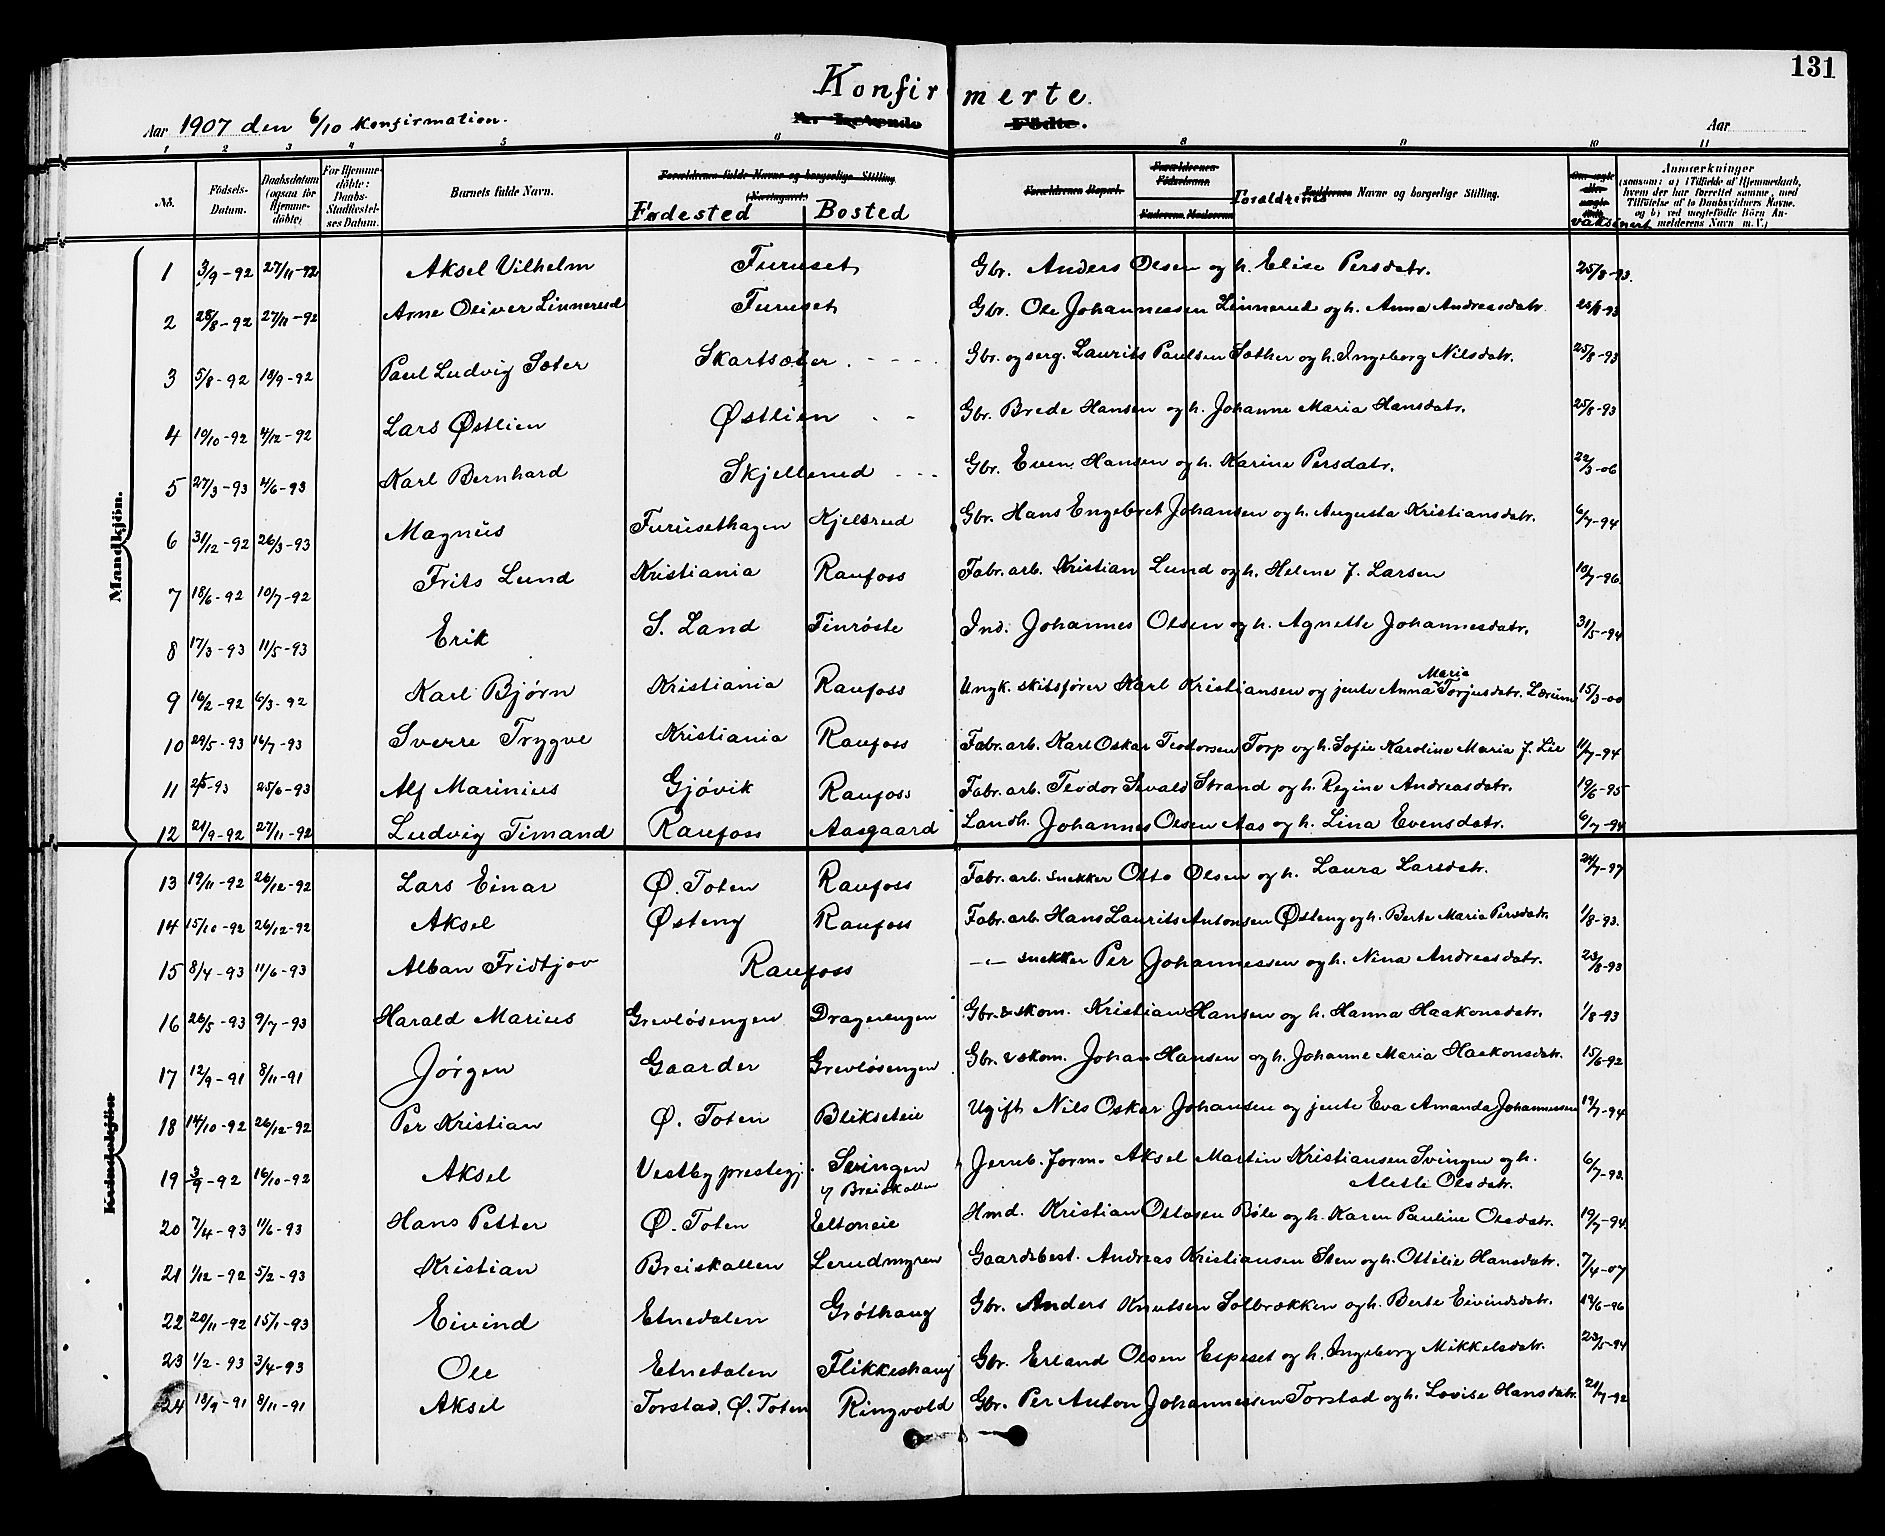 131
Konfirmerte.
Aar 1907 den 6/10 Konfirmation.
Födte.
Aar
1 2 3 4 5 6 8 9 10 11
No. Födsels-Datum. Daabsdatum (ogsaa for Hjemmedöbte) For Hjemmedöbte: Daabs-Stadfæstelses Datum. Barnets fulde Navn. Forældrenes fulde Navne og borgerlige Stilling Fødested Bosted Forældrenes Bopæl. Forældrenes Fødselsaar Faderens Moderens Foraldrenes Fadderens Navne og borgerlige Stilling. Om ægte eller uægte født vaksinert Anmærkninger (saasom: a) i Tilfælde af Hjemmedaab, hvem der har forrettet samme, med Tilföielse af to Daabsvidners Navne. og b) ved uægtefödte Börn Anmelderens Navn m. V.)
Mandkjön.
1 3/9-92 27/11-92 Aksel Vilhelm Furuset Gbr. Anders Olsen og h. Elise Persdatr. 25/8-93.
2 28/8-92 27/11-92 Arne Oliver Linnerud Furuset Gbr. Ole Johannessen Linnerud og h. Anna Andreasdatr. 25/8-93
3 5/8-92 18/9-92 Paul Ludvig Sæter Skartsæter Gbr. og serg. Laurits Paulsen Sæther og h. Ingeborg Nilsdatr. 25/8-93
4 19/10-92 4/12-92 Lars Østlien Østlien Gbr. Brede Hansen og h. Johanne Maria Hansdatr. 25/8-93
5 27/3-93 4/6-93 Karl Bernhard Skjellerud Gbr. Even Hansen og h. Karine Persdatr. 22/3-06
6 31/12-92 26/3-93 Magnus Furusethagen Kjelsrud Gbr. Hans Engebret Johansen og h. Augusta Kristiansdatr. 6/7-94
7 18/6-92 10/7-92 Frits Lund Kristiania Raufoss Fabr. arb. Kristian Lund og h. Helene f. Larsen 10/7-96.
8 17/3-93 11/5-93 Erik S. Land Finröste Ind. Johannes Olsen og h. Agnette Johannesdatr. 31/5-94
9 16/2-92 6/3-92 Karl Bjørn Kristiania Raufoss Ungk. skibsfører Karl Kristiansen og jente Anna Maria Torjusdatr. Lærum 15/3-00
10 29/5-93 16/7-93 Sverre Trygve Kristiania Raufoss Fabr. arb. Karl Oskar Teodorsen Torp og h. Sofie Karoline Maria f. Lie 11/7-94
11 2/5-93 25/6-93 Alf Marinius Gjøvik Raufoss Fabr. arb. Teodor Sevald Strand og h. Regine Andreasdatr. 19/6-95
12 21/9-92 27/11-92 Ludvig Timand Raufoss Aasgaard Landh. Johannes Olsen Aas og h. Lina Evensdatr. 6/7-94
Kvindekjön
13 19/11-92 26/12-92 Lars Einar Ø. Toten Raufoss Fabr. arb. snekker Otto Olsen og h. Laura Larsdatr. 24/7-97
14 15/10-92 26/12-92 Aksel Østeng Raufoss Fabr. arb. Hans Laurits Antonsen Østeng og h. Berte Maria Persdatr. 1/8-93.
15 8/4-93 11/6-93 Alban Fridtjov Raufoss -"- snekker Per Johannessen og h. Nina Andreasdatr. 23/8-93
16 26/5-93 9/7-93 Harald Marius Grevløsengen Dragerengen Gbr. & skom. Kristian Hansen og h. Hanna Haakonsdatr. 1/8-93
17 12/9-91 8/11-91 Jørgen Gaarder Grevløsengen Gbr. & skom. Johan Hansen og h. Johanne Maria Haakonsdatr. 15/6-92
18 14/10-92 26/12-92 Per Kristian Ø. Toten Blikseteie Ugift Nils Oskar Johansen og jente Eva Amanda Johannessen 19/7-94
19 3/9-92 16/10-92 Aksel Vestby prestegj. Svingen v/ Breiskallen Jernb. form. Aksel Martin Kristiansen Svingen og h. Aletle Olsdatr. 6/7-93.
20 7/4-93 11/6-93 Hans Petter Ø. Toten Eltoneie Hmd. Kristian Ottosen Bøle og h. Karen Pauline Olsdatr. 19/7-94.
21 1/12-92 5/2-93 Kristian Breiskallen Lerudmyren Gaardsbest. Andreas Kristiansen Sten og h. Ottilie Hansdatr. 7/4-07
22 20/11-92 15/1-93 Eivind Etnedalen Grøthaug Gbr. Anders Knutsen Solbrækken og h. Berte Eivindsdatr. 19/6-96
23 1/2-93 3/4-93 Ole Etnedalen Flikkeshaug Gbr. Erland Olsen Espeset og h. Ingeborg Mikkelsdatr. 23/5-94
24 13/9-91 8/11-91 Aksel Torstad, Ø. Toten Ringvold Gbr. Per Anton Johannessen Torstad og h. Lovise Hansdatr. 21/7-92